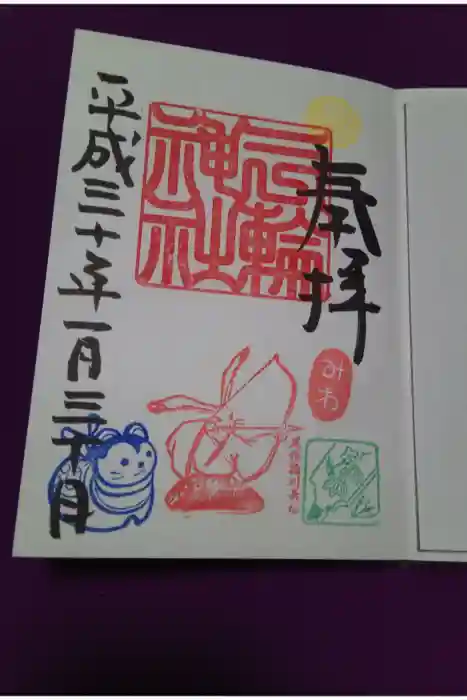 奉拝
三輪神社
みわ
平成三十年一月三十日